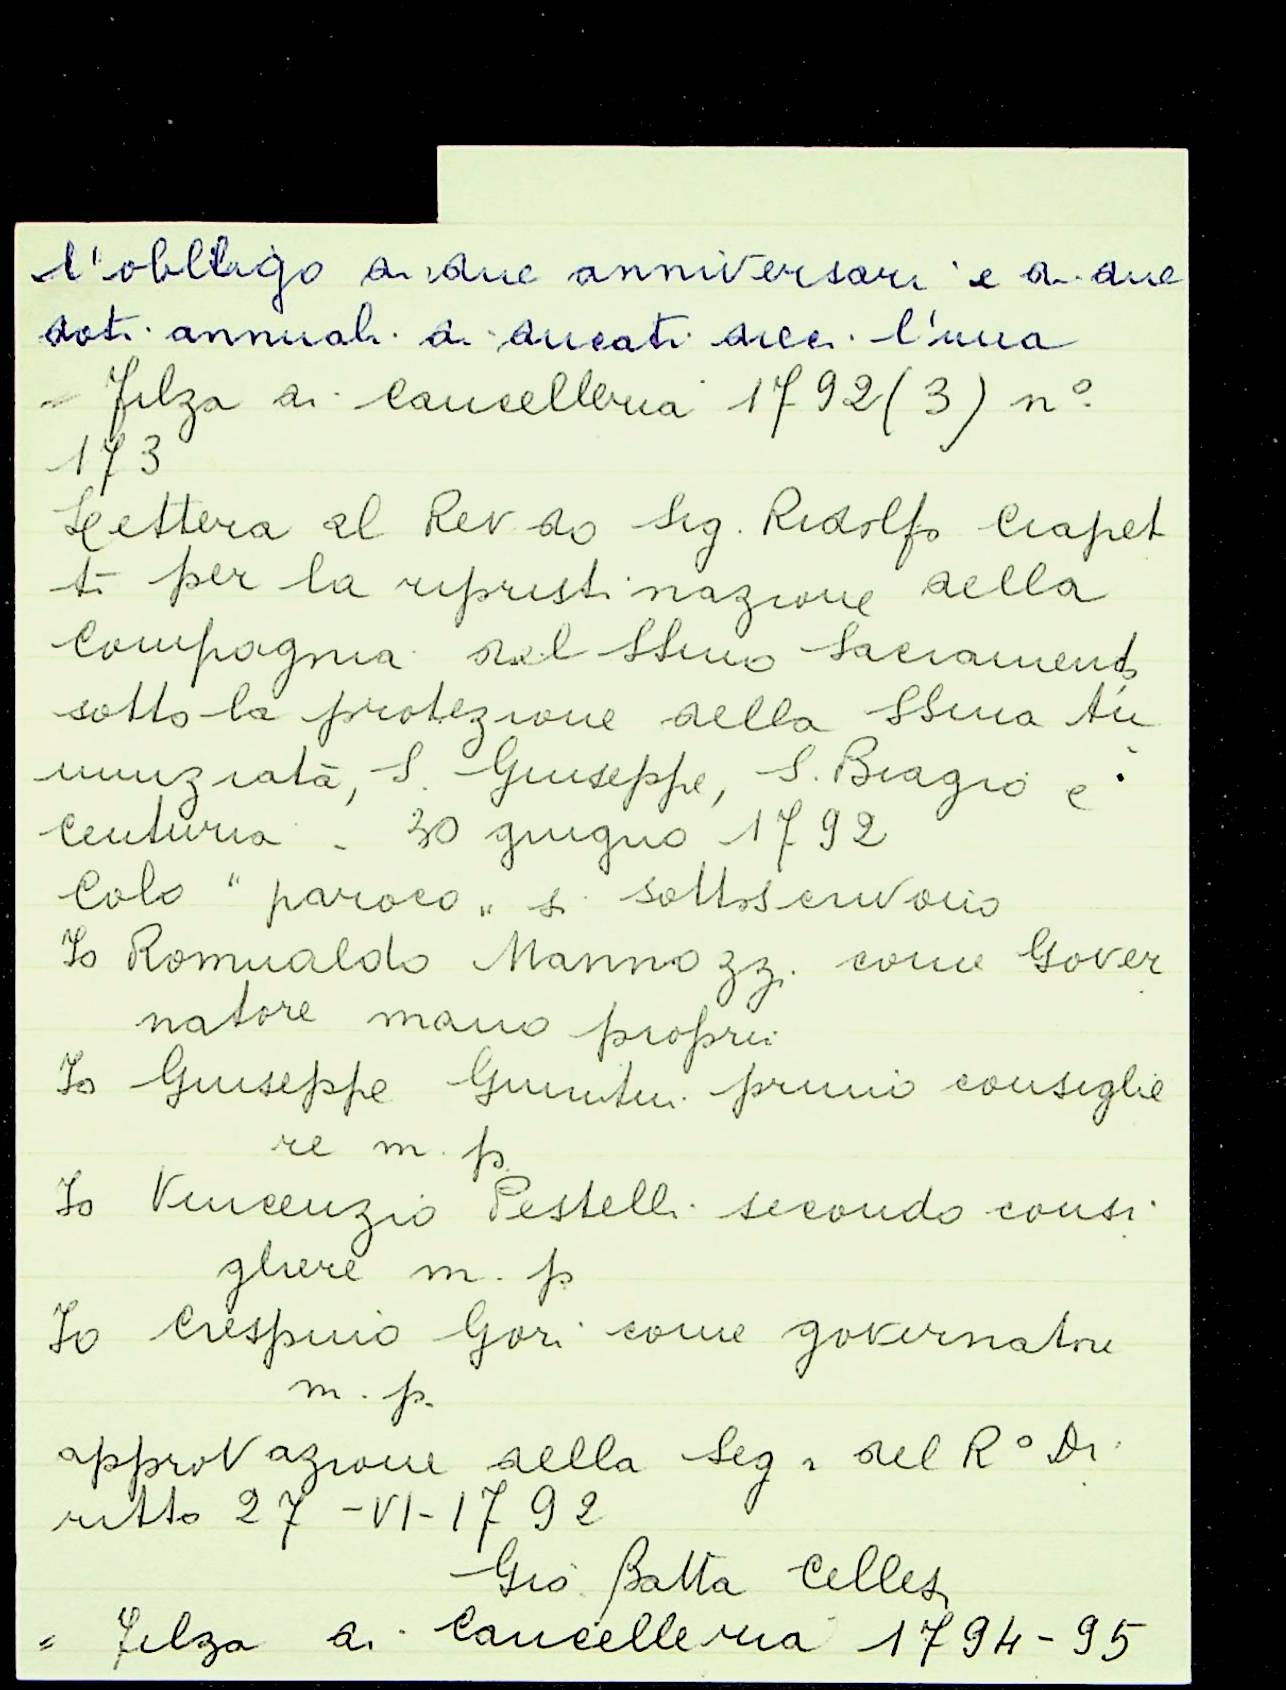 l'obbligo di due anniversari e di due
doti annuali di ducati dieci l'una
= Filza di Cancelleria 1792 (3) n°.
173
Lettera al Rev do Sig. Ridolfo Ciapet
ti per la ripristinazione della
Compagnia del SSmo Sacramento
sotto la protezione della SSma An
nunziata, S. Giuseppe, S. Biagio e
centuria - 30 giugno 1792
Colo "paroco" si sottoscrivono
Io Romualdo Mannozzi come Gover
natore mano propri
Io Giuseppe Giuntini primo consiglie
re m. p.
Io Vincenzio Pestelli secondo consi
gliere m. p
Io Crespino Gori come governatore
m. p.
approvazione della Seg. del R° Di
ritto 27 -VI- 1792
Gio Batta Cellesi
= Filza di Cancelleria 1794-95